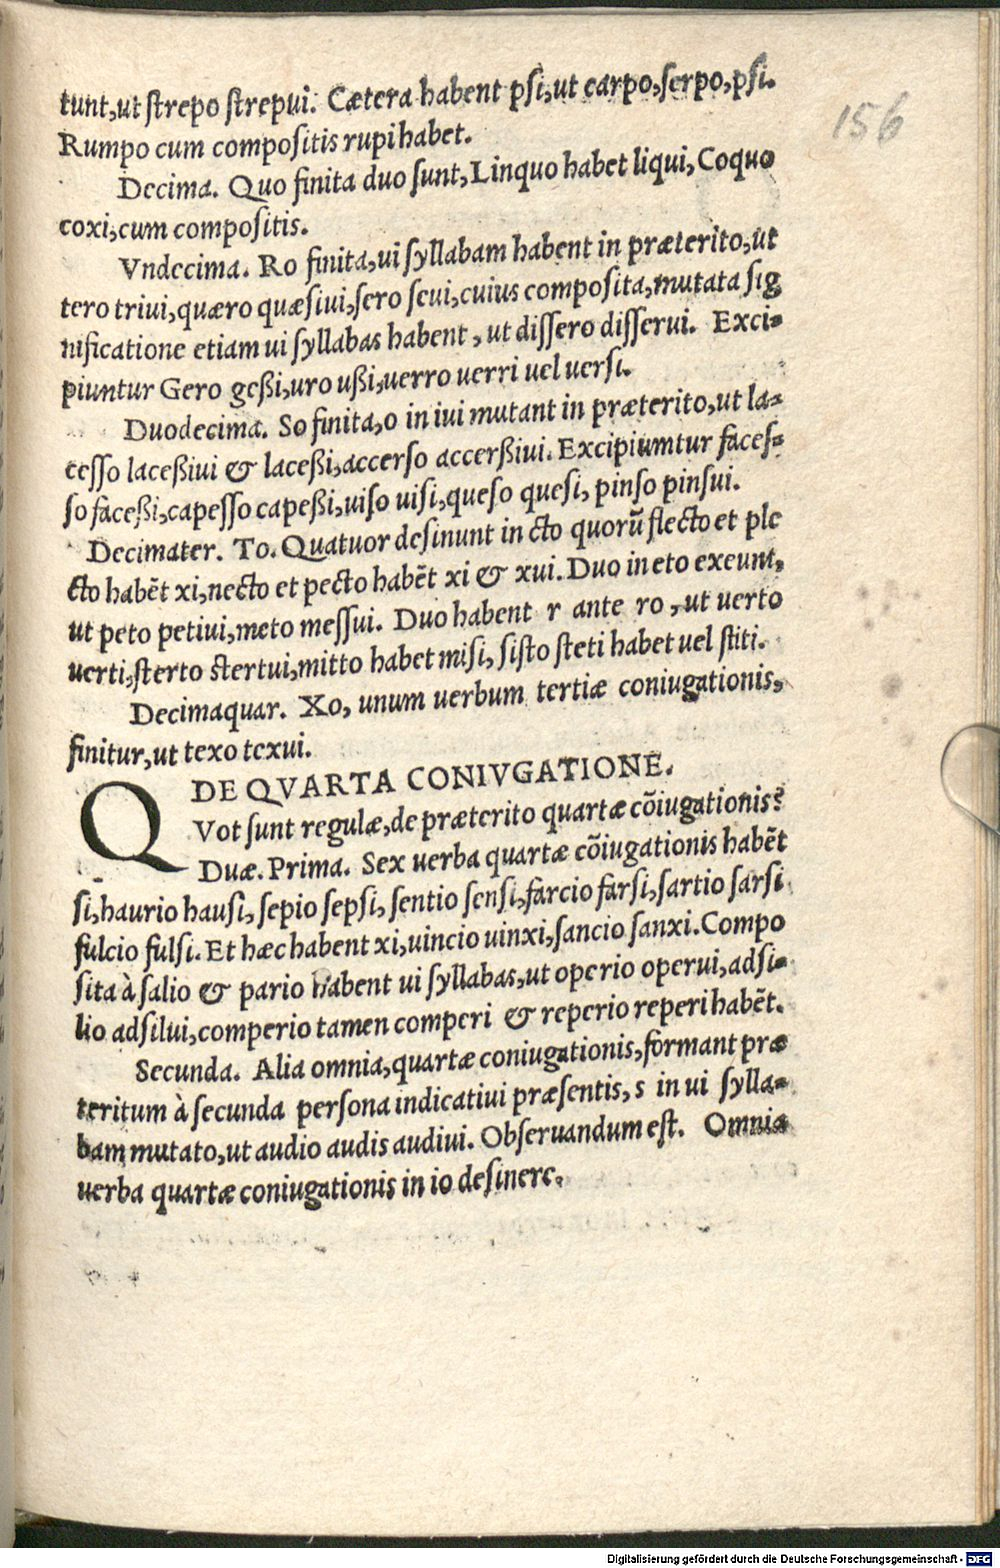 tunt,ut ſtrepo ſtrepui. Cætera habent pſi,ut carpo,ſerpo,pſi.
156
Rumpo cum compoſitis rupi habet.
Decima. Quo finita duo ſunt, Linquo habet liqui, Coquo
coxi,cum compoſitis.
Vndecima. Ro finita,ui ſyllabam habent in præterito,ut
tero trivi,quæro quæſivi,ſero ſevi,cuius compoſita,mutata ſig
nificatione etiam ui ſyllabas habent, ut diſſero diſſerui. Exci-
piuntur Gero geßi,uro ußi,uerro uerri uel uerſi.
Duodecima. So finita,o in ivi mutant in præterito,ut la-
ceſſo laceßivi & laceßi,accerſo accerßivi. Excipiumtur faceſ-
ſo faceßi,capeſſo capeßi,uiſo uiſi,queſo queſi, pinſo pinſui.
Decimater. To. Quatuor deſinunt in cto quorū flecto et ple
cto habēt xi,necto et pecto habēt xi & xui. Duo in eto exeunt,
ut peto petivi,meto meſſui. Duo habent r ante ro, ut uerto
uerti,ſterto ſtertui,mitto habet miſi, ſiſto ſteti habet uel ſtiti.
Decimaquar. Xo, unum uerbum tertiæ coniugationis,
finitur,ut texo texui.
DE QVARTA CONIVGATIONE.
QVot ſunt regulæ,de præterito quartæ cōiugationis?
Duæ. Prima. Sex uerba quartæ cōiugationis habēt
ſi,haurio hauſi, ſepio ſepſi, ſentio ſenſi,farcio farſi,ſartio ſarſi
fulcio fulſi. Et hæc habent xi,uincio uinxi,ſancio ſanxi. Compo
ſita à ſalio & pario habent ui ſyllabas,ut operio operui,adſi-
lio adſilui,comperio tamen comperi & reperio reperi habēt.
Secunda. Alia omnia,quartæ coniugationis,formant præ
teritum à ſecunda perſona indicativi præſentis, s in ui ſylla-
bam mutato,ut audio audis audivi. Obſeruandum eſt. Omnia
uerba quartæ coniugationis in io deſinere.
Digitalisierung gefördert durch die Deutsche Forschungsgemeinschaft - DFG